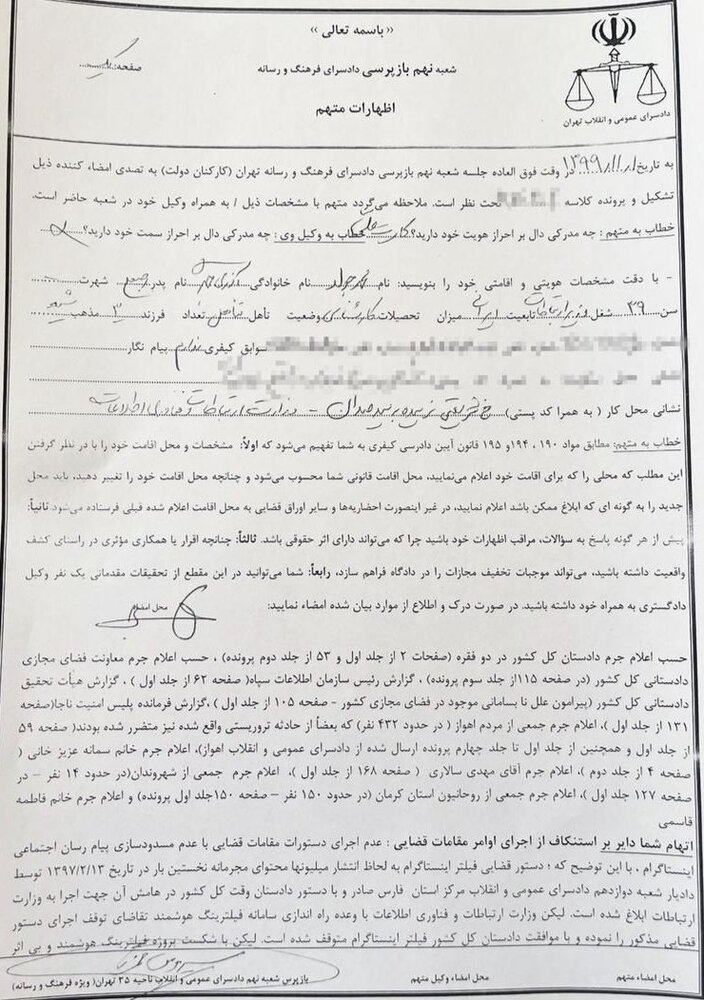 «باسمه تعالی»
شعبه نهم بازپرسی دادسرای فرهنگ و رسانه
صفحه: یک
اظهارات متهم
دادسرای عمومی و انقلاب تهران
به تاریخ ۱۳۹۹/۱۱/۱ در وقت فوق العاده جلسه شعبه نهم بازپرسی دادسرای فرهنگ و رسانه تهران (کارکنان دولت) به تصدی امضاء کننده ذیل
تشکیل و پرونده کلاسه تحت نظر است. ملاحظه می‌گردد متهم با مشخصات ذیل / به همراه وکیل خود در شعبه حاضر است.
خطاب به متهم: چه مدرکی دال بر احراز هویت خود دارید؟ کارت ملی خطاب به وکیل وی: چه مدرکی دال بر احراز سمت خود دارید؟
- با دقت مشخصات هویتی و اقامتی خود را بنویسید: نام محمدجواد نام خانوادگی آذری جهرمی نام پدر شهرت
سن ۳۹ شغل وزیر ارتباطات تابعیت ایرانی میزان تحصیلات کارشناسی وضعیت تأهل متاهل تعداد فرزند ۳ مذهب شیعه
سوابق کیفری ندارم پیام نگار
نشانی محل کار (به همرا کد پستی) خ شریعتی نرسیده به پل سیدخندان - وزارت ارتباطات و فناوری اطلاعات
خطاب به متهم: مطابق مواد ۱۹۰، ۱۹۴ و ۱۹۵ قانون آیین دادرسی کیفری به شما تفهیم می‌شود که اولاً: مشخصات و محل اقامت خود را با در نظر گرفتن
این مطلب که محلی را که برای اقامت خود اعلام می‌نمایید، محل اقامت قانونی شما محسوب می‌شود و چنانچه محل اقامت خود را تغییر دهید، باید محل
جدید را به گونه ای که ابلاغ ممکن باشد اعلام نمایید، در غیر اینصورت احضاریه‌ها و سایر اوراق قضایی به محل اقامت اعلام شده قبلی فرستاده می‌شود ثانیاً:
پیش از هر گونه پاسخ به سؤالات، مراقب اظهارات خود باشید چرا که می‌تواند دارای اثر حقوقی باشد. ثالثاً: چنانچه اقرار یا همکاری مؤثری در راستای کشف
واقعیت داشته باشید، می‌تواند موجبات تخفیف مجازات را در دادگاه فراهم سازد، رابعاً: شما می‌توانید در این مقطع از تحقیقات مقدماتی یک نفر وکیل
دادگستری به همراه خود داشته باشید. در صورت درک و اطلاع از موارد بیان شده امضاء نمایید: محل امضاء
حسب اعلام جرم دادستان کل کشور در دو فقره (صفحات ۲ از جلد اول و ۵۳ از جلد دوم پرونده) ، حسب اعلام جرم معاونت فضای مجازی
دادستانی کل کشور (در صفحه ۱۱۵از جلد سوم پرونده) ، گزارش رئیس سازمان اطلاعات سپاه( صفحه ۶۲ از جلد اول ) ، گزارش هیأت تحقیق
دادستانی کل کشور (پیرامون علل نا بسامانی موجود در فضای مجازی کشور - صفحه ۱۰۵ از جلد اول ) ،گزارش فرمانده پلیس امنیت ناجا(صفحه
۱۳۱ از جلد اول)، اعلام جرم جمعی از مردم اهواز ( در حدود ۴۳۲ نفر) که بعضاً از حادثه تروریستی واقع شده نیز متضرر شده بودند( صفحه ۵۹
از جلد اول و همچنین از جلد اول تا جلد چهارم پرونده ارسال شده از دادسرای عمومی و انقلاب اهواز)، اعلام جرم خانم سمانه عزیز خانی (
صفحه ۴ از جلد دوم )، اعلام جرم آقای مهدی سالاری ( صفحه ۱۶۸ از جلد اول )، اعلام جرم جمعی از شهروندان(در حدود ۱۴ نفر - در
صفحه ۱۲۷ جلد اول)، اعلام جرم جمعی از روحانیون استان کرمان (در حدود ۱۵۰ نفر - صفحه ۱۵۰جلد اول پرونده) و اعلام جرم خانم فاطمه
قاسمی
اتهام شما دایر بر استنکاف از اجرای اوامر مقامات قضایی : عدم اجرای دستورات مقامات قضایی با عدم مسدودسازی پیام رسان اجتماعی
اینستاگرام ، با این توضیح که ؛ دستور قضایی فیلتر اینستاگرام به لحاظ انتشار میلیونها محتوای مجرمانه نخستین بار در تاریخ ۱۳۹۷/۲/۱۳ توسط
دادیار شعبه دوازدهم دادسرای عمومی و انقلاب مرکز استان فارس صادر و با دستور دادستان وقت کل کشور در هامش آن جهت اجرا به وزارت
ارتباطات ابلاغ شده است. لیکن وزارت ارتباطات و فناوری اطلاعات با وعده راه اندازی سامانه فیلترینگ هوشمند تقاضای توقف اجرای دستور
قضایی مذکور را نموده و با موافقت دادستان کل کشور فیلتر اینستاگرام متوقف شده است. لیکن با شکست پروژه فیلترینگ هوشمند و بی اثر
محل امضاء متهم
محل امضاء وکیل متهم
بازپرس شعبه نهم دادسرای عمومی و انقلاب ناحیه ۳۵ تهران( ویژه فرهنگ و رسانه)